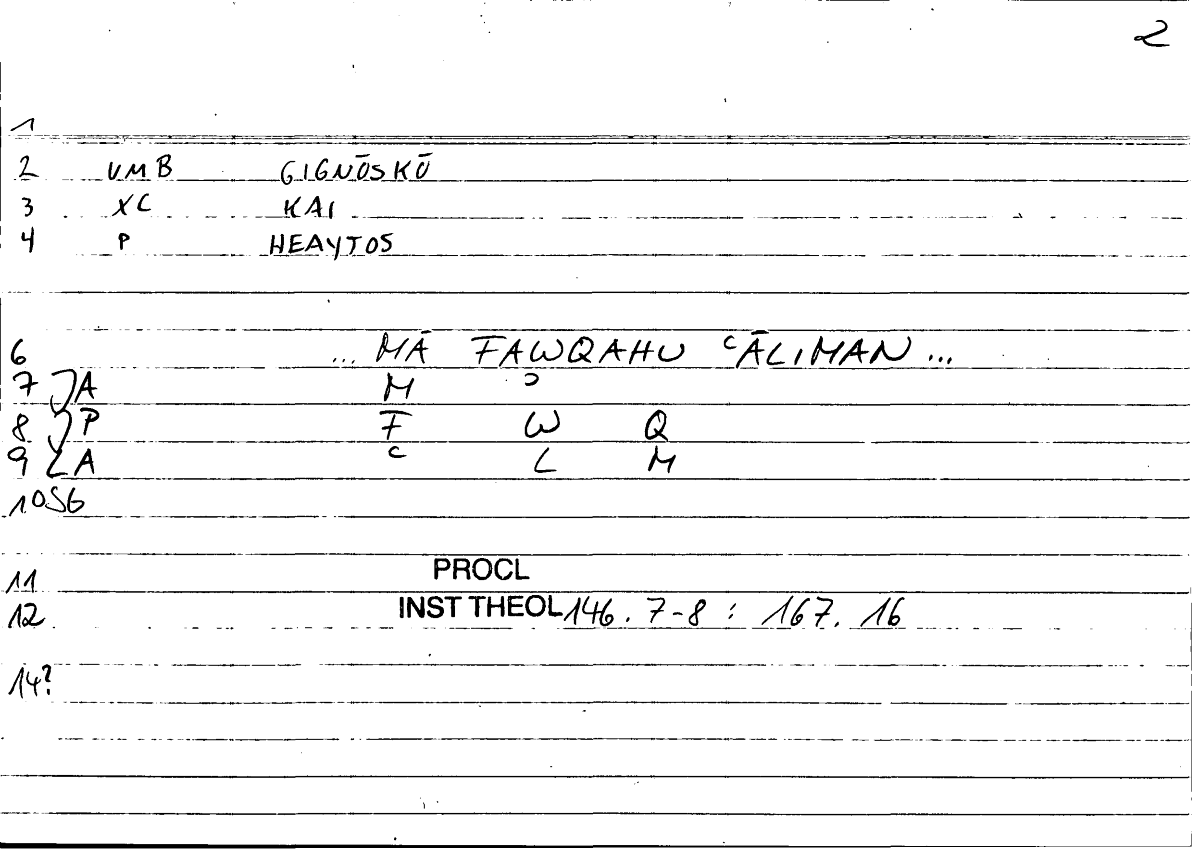 2
1
2 VMB GIGNŌSKŌ
3 XC KAI
4 P HEAYTOS
6 ... MĀ FAWQAHU ʿĀLIMAN ...
7 A M ʾ
8 P F W Q
9 A ʿ L M
10 SG
11 PROCL
12 INST THEOL 146. 7-8 : 167. 16
14?